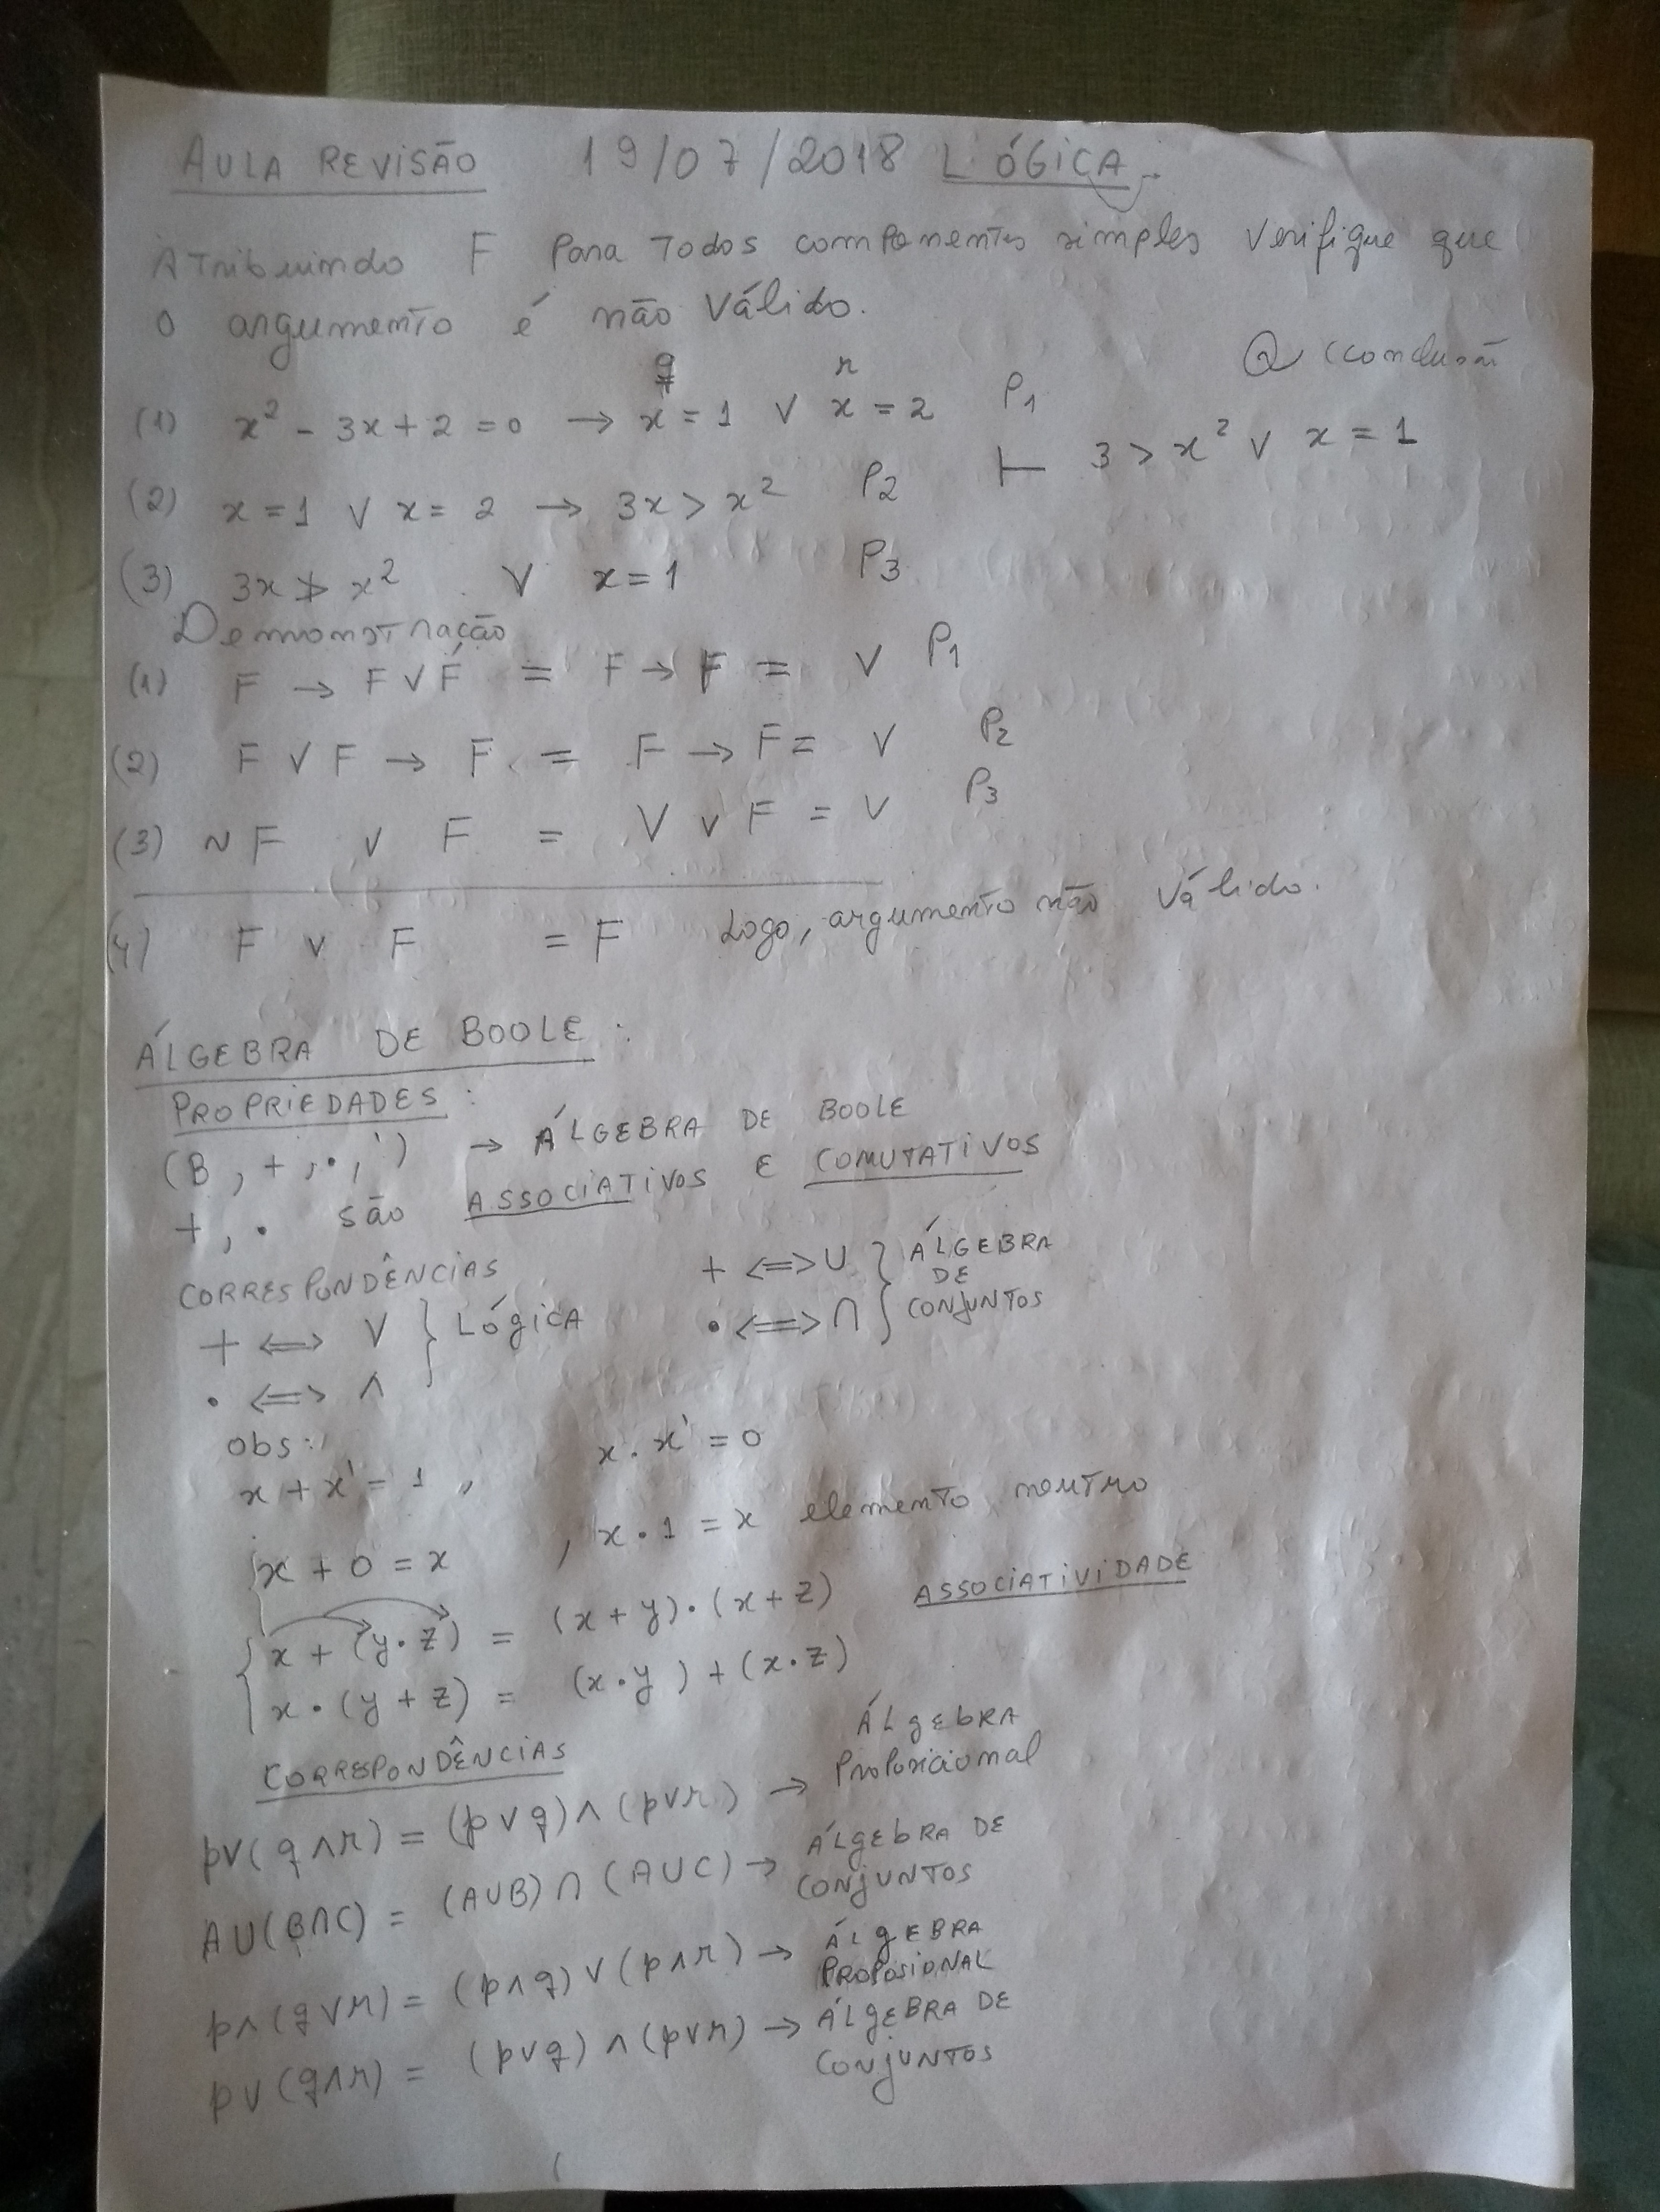 AULA REVISÃO 19/07/2018 LÓGICA
Atribuindo F para todos componentes simples verifique que
o argumento é não válido.
q r Q (conclusão
(1) x² - 3x + 2 = 0 → x = 1 ∨ x = 2 P1
⊢ 3 > x² ∨ x = 1
(2) x = 1 ∨ x = 2 → 3x > x² P2
(3) 3x ≯ x² ∨ x = 1 P3
Demonstração
(1) F → F ∨ F = F → F = V P1
(2) F ∨ F → F = F → F = V P2
(3) ~F ∨ F = V ∨ F = V P3
(4) F ∨ F = F Logo, argumento não válido.
ÁLGEBRA DE BOOLE :
PROPRIEDADES :
(B, +, •, ') → ÁLGEBRA DE BOOLE
+, • são ASSOCIATIVOS E COMUTATIVOS
CORRESPONDÊNCIAS
+ <=> ∨ } LÓGICA
• <=> ∧
+ <=> ∪ } ÁLGEBRA
DE
• <=> ∩ CONJUNTOS
obs:
x + x' = 1 , x . x' = 0
x + 0 = x , x • 1 = x elemento neutro
x + (y • z) = (x + y) • (x + z) ASSOCIATIVIDADE
x • (y + z) = (x • y) + (x • z)
CORRESPONDÊNCIAS
p∨(q∧r) = (p∨q)∧(p∨r) → ÁLGEBRA
Proposicional
A∪(B∩C) = (A∪B)∩(A∪C) → ÁLGEBRA DE
CONJUNTOS
p∧(q∨r) = (p∧q)∨(p∧r) → ÁLGEBRA
PROPOSIONAL
p∨(q∧r) = (p∨q)∧(p∨r) → ÁLGEBRA DE
CONJUNTOS